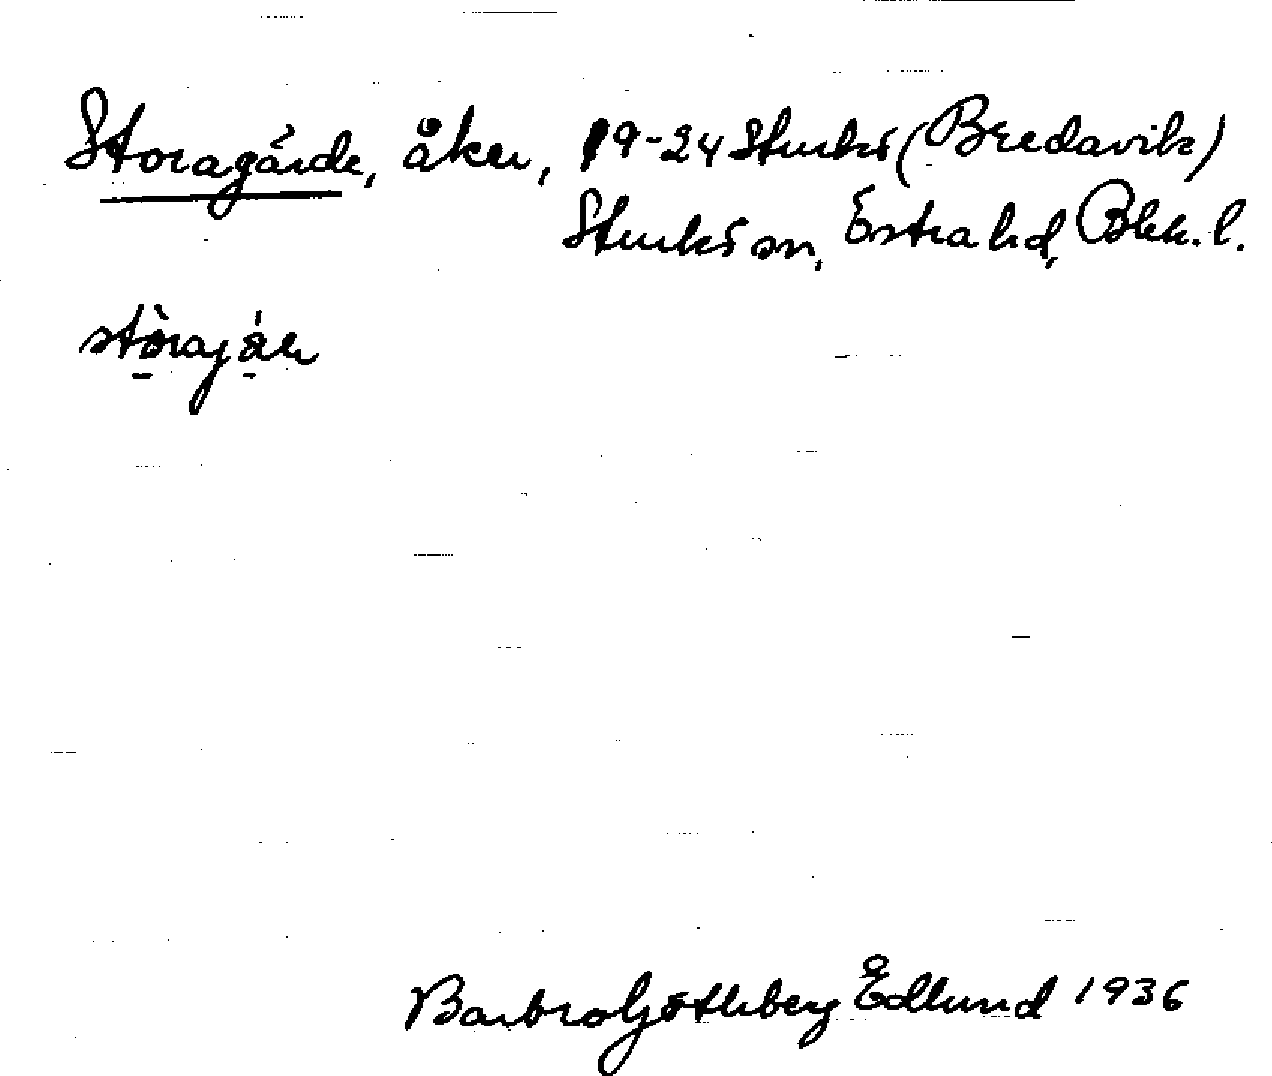 Storagärde, åker, 19-24 Sturkö (Bredavik)
Sturkö sn, Östra hd, Blek. l.
Barbro Edlund 1936